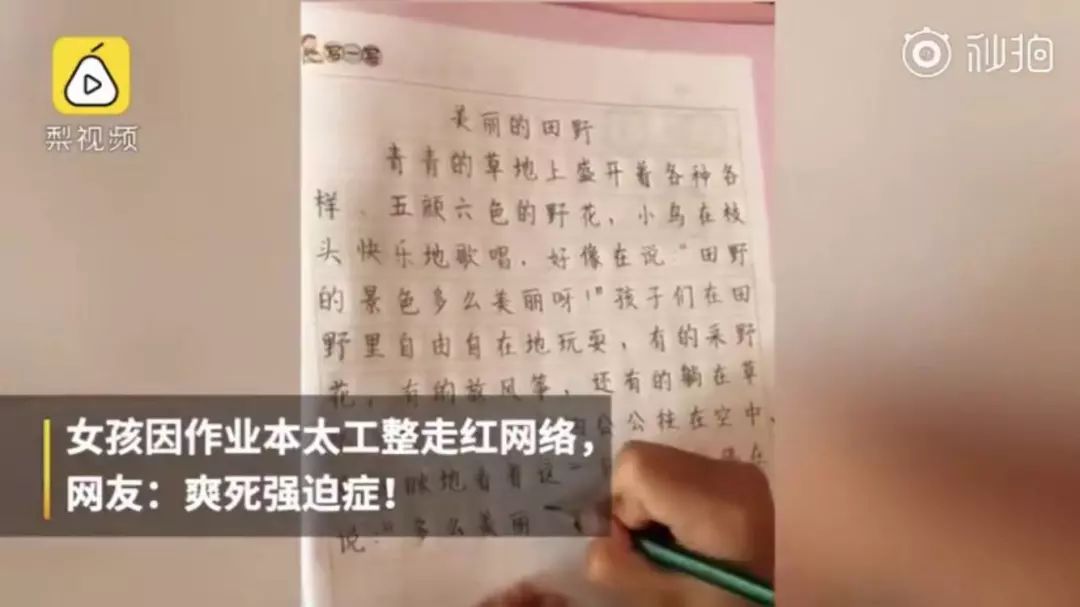 梨视频
秒拍
写一写
美丽的田野
青青的草地上盛开着各种各
样、五颜六色的野花，小鸟在枝
头快乐地歌唱，好像在说“田野
的景色多么美丽呀！”孩子们在田
野里自由自在地玩耍，有的采野
花，有的放风筝，还有的躺在草
公公挂在空中，
眯地看着这一
说：“多么美丽
女孩因作业本太工整走红网络，
网友：爽死强迫症！